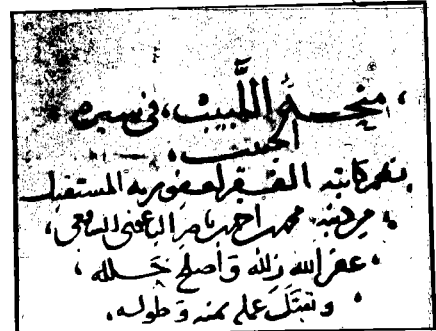 منحة اللَّبيب، في سيرة
الحبيب،
نظم كاتبه الفقير لعفو ربه المستقيل
من ذنبه محمد احمد بن ناصر الباعوني الشافعي،
عفر الله زلله وأصلح خلله،
وتقبَّل عمله بمنه وطوله،